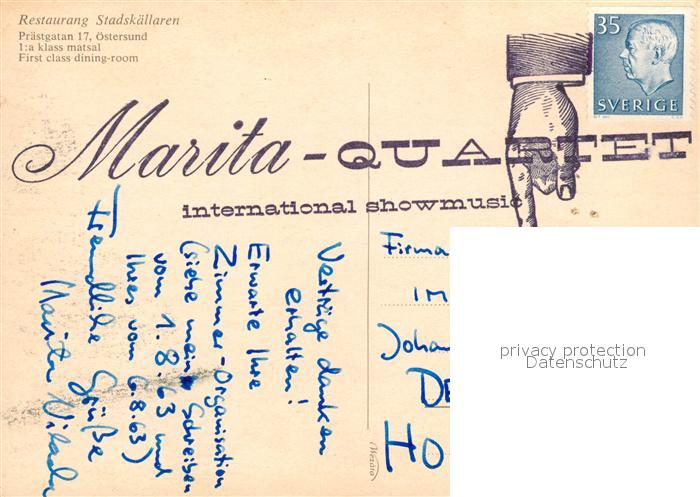 Restaurang Stadskällaren
Prästgatan 17, Östersund
1:a klass matsal
First class dining-room
35
SVERIGE
Marita-QUARTET
international showmusic
Verträge dankend
erhalten!
Erwarte Ihre
Zimmer-Organisation
(siehe mein Schreiben
vom 1.8.63 und
Ihres vom 6.8.63)
Freundliche Grüße
Marita
Firma
im
Johan
DE
HO
privacy protection
Datenschutz